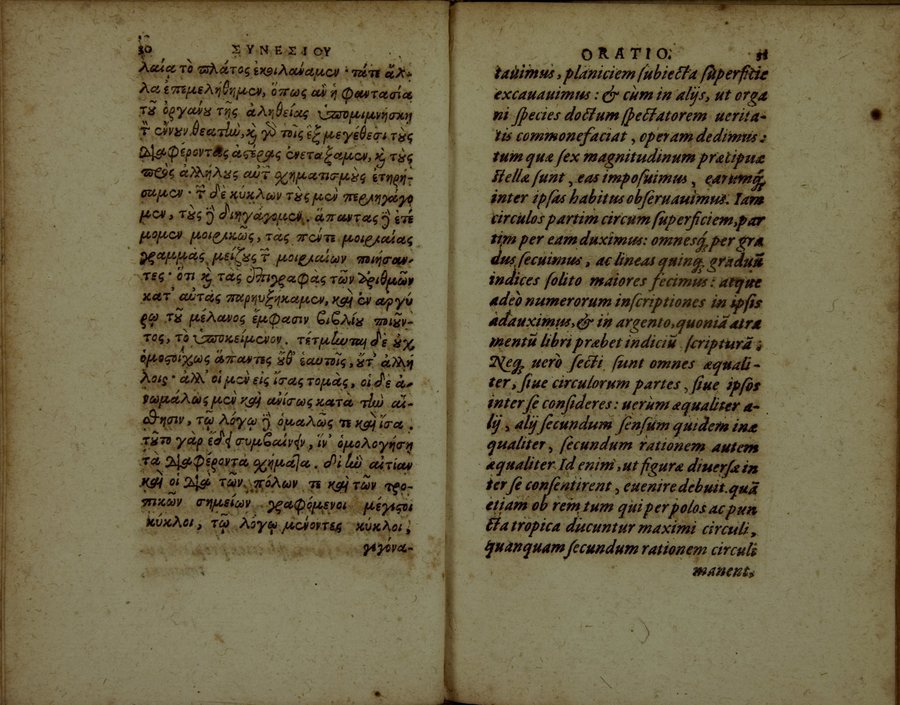 30
ΣΥΝΕΣΙΟΥ
λαία τὸ πλάτος ἐκοιλαίναμεν· τά τε ἄλ-
λα ἐπεμελήθημεν, ὅπως ἂν ἡ φαντασία
τοῦ ὀργάνου τῆς ἀληθείας ὑπομιμνήσκῃ
τὸν ἔννουν θεατὴν, καὶ γὸ τοῖς ἓξ μεγέθεσι τοὺς
διαφέροντας ἀστέρας ἐνετάξαμεν, καὶ τοὺς
πρὸς ἀλλήλους αὐτῶν σχηματισμοὺς ἐτηρή-
σαμεν· τῶν δὲ κύκλων τοὺς μὲν περιηγάγο
μεν, τοὺς δὲ διηγάγομεν. ἅπαντας δὲ ἐτέ
μομεν μοιριακῶς, τὰς πέντε μοιριαίας
γραμμὰς μείζους τῶν μοιριαίων ποιήσαν-
τες· ὅτι καὶ τὰς ἐπιγραφὰς τῶν ἀριθμῶν
κατ' αὐτὰς παρηυξήκαμεν, καὶ ἐν ἀργύ
ρῳ τοῦ μέλανος ἔμφασιν βιβλίου ποιοῦν-
τος, τὸ ὑποκείμενον. τέτμηνται δὲ οὐχ
ὁμοστοίχως ἅπαντες οὔθ' ἑαυτοῖς, οὔτ' ἀλλή
λοις· ἀλλ' οἱ μὲν εἰς ἴσας τομὰς, οἱ δὲ ἀ-
νωμάλως μὲν καὶ ἀνίσως κατὰ τὴν αἴ-
σθησιν, τῷ λόγῳ δὲ ὁμαλῶς τε καὶ ἴσα.
τοῦτο γὰρ ἔδει συμβαίνειν, ἵν' ὁμολογήσῃ
τὰ διαφέροντα σχήματα. δι' ἣν αἰτίαν
καὶ οἱ διὰ τῶν πόλων τε καὶ τῶν τρο-
πικῶν σημείων γραφόμενοι μέγιστοι
κύκλοι, τῷ λόγῳ μένοντες κύκλοι,
γεγόνα-
ORATIO.
31
tauimus, planiciem subiecta superficie
excauauimus: & cùm in alijs, ut orga
ni species doctum spectatorem uerita-
tis commonefaciat, operam dedimus:
tum quæ sex magnitudinum præcipuæ
stellæ sunt, eas imposuimus, earumq́;
inter ipsas habitus obseruauimus. Iam
circulos partim circum superficiem, par
tim per eam duximus: omnesq́; per gra
dus secuimus, ac lineas quinq; graduũ
indices solito maiores fecimus: atque
adeò numerorum inscriptiones in ipsis
adauximus, & in argento, quoniã atra
mentũ libri præbet indiciũ scripturã:
Neq; uerò secti sunt omnes æquali-
ter, siue circulorum partes, siue ipsos
inter se consideres: uerùm æqualiter a-
lij, alij secundum sensum quidem inæ
qualiter, secundum rationem autem
æqualiter. Id enim, ut figuræ diuersæ in
ter se consentirent, euenire debuit. quã
etiam ob rem tum qui per polos ac pun
cta tropica ducuntur maximi circuli,
quanquam secundum rationem circuli
manent,